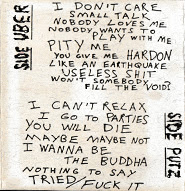 SIDE UBER
I DON'T CARE
SMALL TALK
NOBODY LOVES ME
NOBODY WANTS TO
PLAY WITH ME
PITY ME
YOU GIVE ME HARDON
LIKE AN EARTHQUAKE
USELESS SHIT
WON'T SOMEBODY
FILL THE VOID?
SIDE PUTZ
I CAN'T RELAX
I GO TO PARTIES
YOU WILL DIE
MAYBE MAYBE NOT
I WANNA BE
THE BUDDHA
NOTHING TO SAY
TRIED/FUCK IT